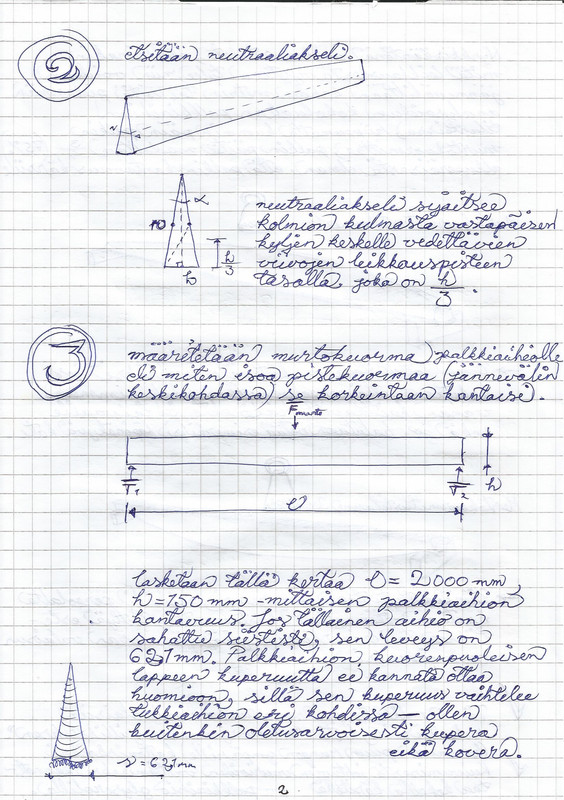 2
Etsitään neutraaliakseli.
α
neutraaliakseli sijaitsee
kolmion kulmasta vastapäisen
kyljen keskelle vedettävien
viivojen leikkauspisteen
tasolla, joka on h/3.
h/3
3
määritetään murtokuorma palkkiaihiolle
eli miten isoa pistekuormaa (jännevälin
keskikohdassa) se korkeintaan kantaisi.
F murto
T1
T2
h
l
Lasketaan tällä kertaa l = 2000 mm,
h = 150 mm -mittaisen palkkiaihion
kantavuus. Jos tällainen aihio on
sahattu siististi, sen leveys on
62,1 mm. Palkkiaihion kuorenpuoleisen
lappeen kuperuutta ei kannata ottaa
huomioon, sillä sen kuperuus vaihtelee
tukkiaihion eri kohdissa — ollen
kuitenkin oletusarvoisesti kupera
eikä kovera.
s = 62,1 mm
2